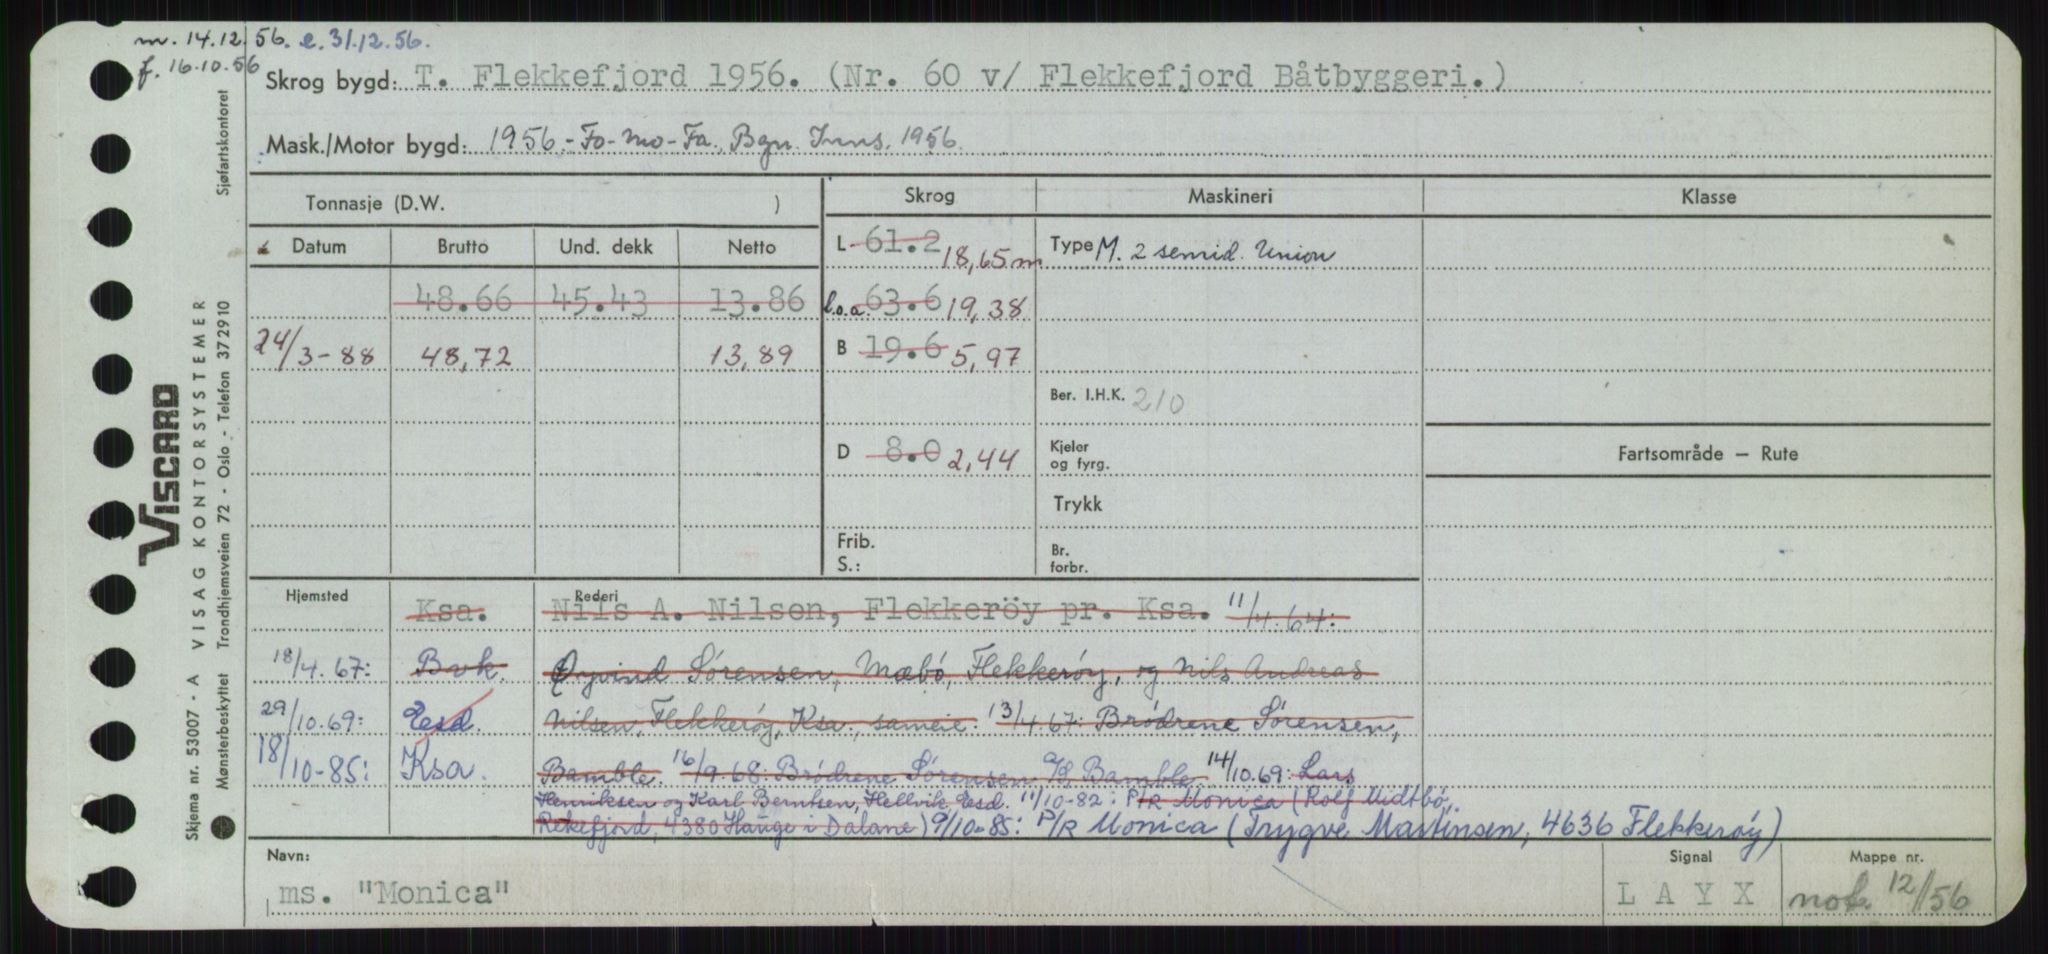 m. 14.12.56. e. 31.12.56.
f. 16.10.56
Skrog bygd: T. Flekkefjord 1956. (Nr. 60 v/ Flekkefjord Båtbyggeri.)
Mask./Motor bygd: 1956.-Fo-Mo-Fa., Bgn. Inns. 1956.
Tonnasje (D.W. ) Skrog Maskineri Klasse
Datum Brutto Und. dekk Netto L 61.2 18,65 m Type M. 2 semid. Union
48.66 45.43 13.86 l.o.a. 63.6 19,38
24/3-88 48,72 13,89 B 19.6 5,97
Ber. I.H.K. 210
D 8.0 2,44 Kjeler og fyrg. Fartsområde — Rute
Trykk
Frib. Br.
S.: forbr.
Hjemsted Ksa. Rederi Nils A. Nilsen, Flekkeröy pr. Ksa. 11/4.64:
18/4.67: Bvk. Øyvind Sørensen, Mæbø, Flekkerøy, og Nils Andreas
29/10.69: Eesd. Nilsen, Flekkerøy, Ksa., sameie. 13/4.67: Brødrene Sørensen,
18/10-85: Ksa. Bamble. 16/9.68: Brødrene Sørensen A/S Bamble 14/10.69: Lars
Henriksen og Karl Berntsen, Hellvik, Eesd. 11/10-82: P/R Monica (Rolf Midtbø,
Rekefjord, 4380 Hauge i Dalane) 9/10-85: P/R Monica (Trygve Martinsen, 4636 Flekkerøy)
Navn: Signal Mappe nr.
ms. "Monica" L A Y X not. 12/56
VISCARD
Skjema nr. 53007 - A VISAG KONTORSYSTEMER
Mønsterbeskyttet Trondhjemsveien 72 - Oslo - Telefon 37 29 10 Sjøfartskontoret